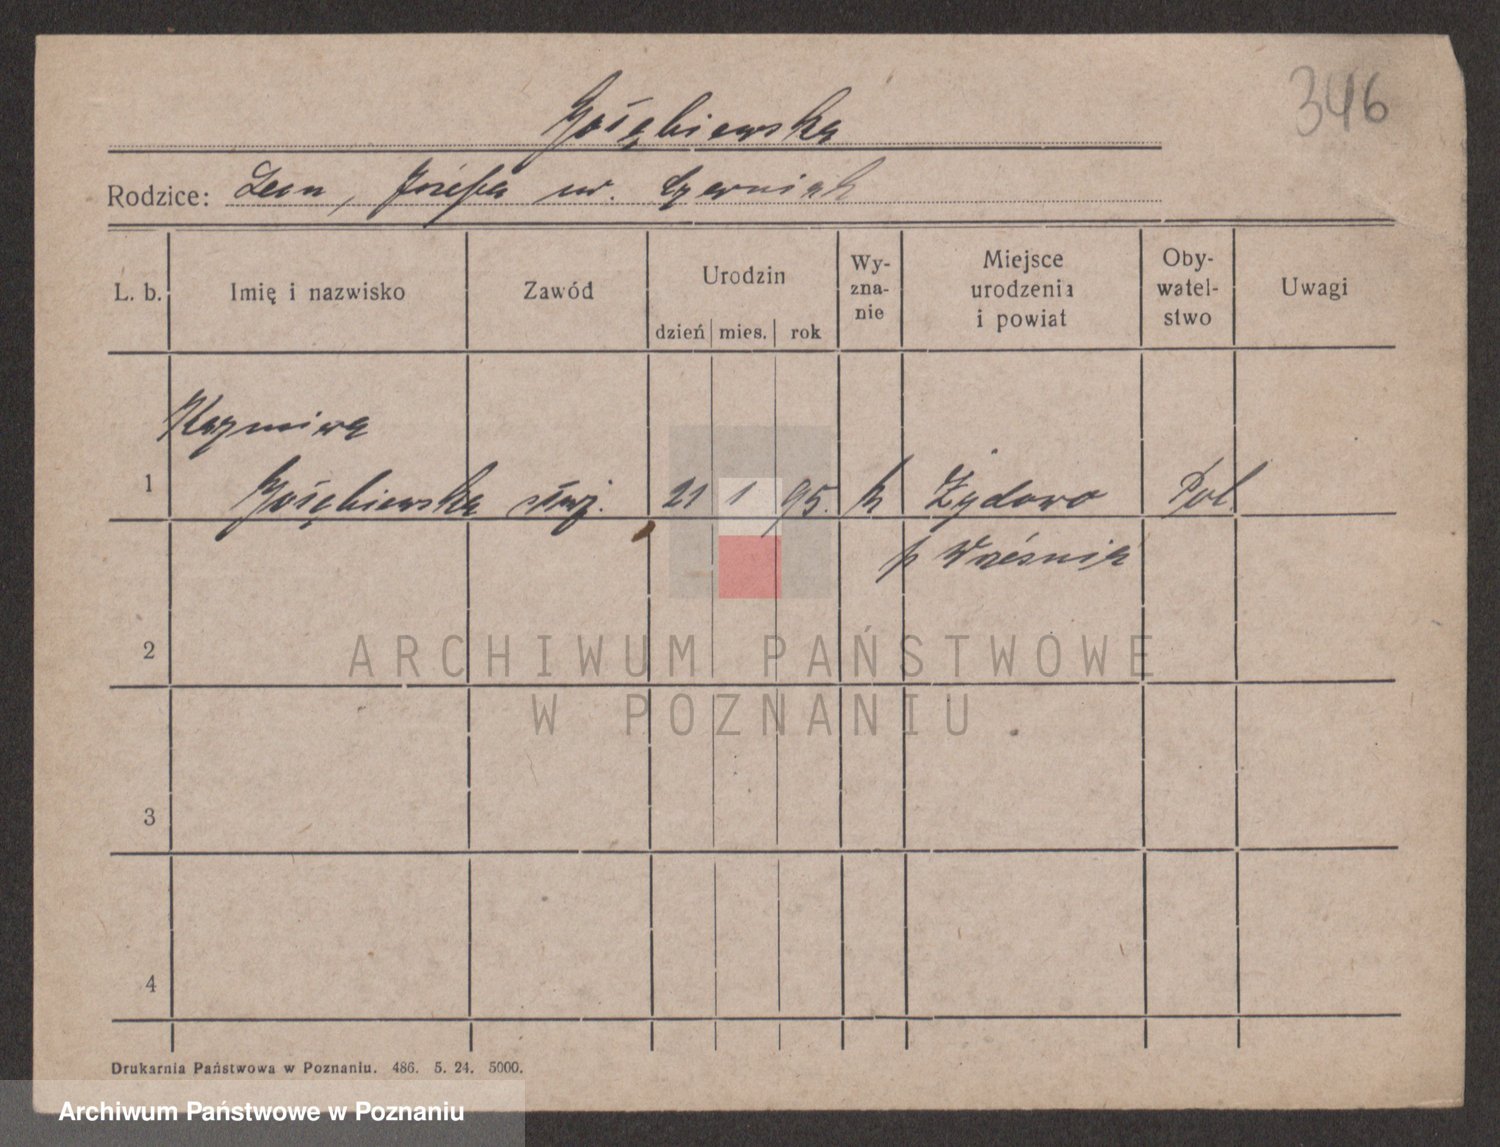 346
Gołębiewska
Rodzice: Leon, Józefa ur. Czerniak
L. b.
Imię i nazwisko
Zawód
Urodzin
dzień mies. rok
Wy-
zna-
nie
Miejsce
urodzenia
i powiat
Oby-
watel-
stwo
Uwagi
Kazmiera
1 Gołębiewska służ. 21 1 95. k Żydowo Pol.
p Wrześnik
2
3
4
ARCHIWUM PAŃSTWOWE
W POZNANIU
Drukarnia Państwowa w Poznaniu. 486. 5. 24. 5000.
Archiwum Państwowe w Poznaniu